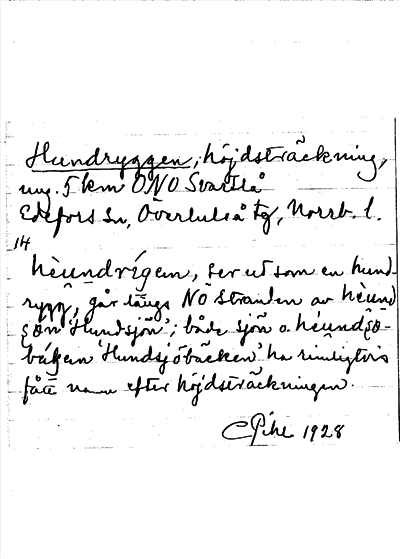 Hundryggen, höjdsträckning,
ung. 5 km ONO Svartlå
Edefors sn, Överluleå tg, Norrb. l.
14
hèundrígen, ser ut som en hund-
rygg, går längs NO stranden av hèund
sön 'Hundsjön'; både sjön o. hèundsö-
bátjen 'Hundsjöbäcken' ha rimligtvis
fått namn efter höjdsträckningen.
CPihl 1928